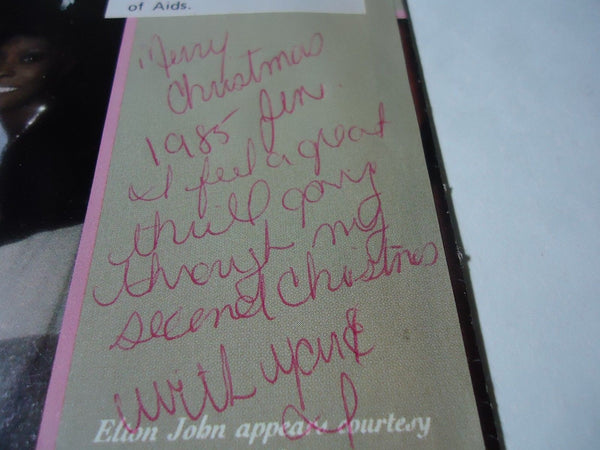 of Aids.
Merry
Christmas
1985 Jen.
I feel a great
thrill going
through my
second Christmas
with you &
Elton John appears courtesy